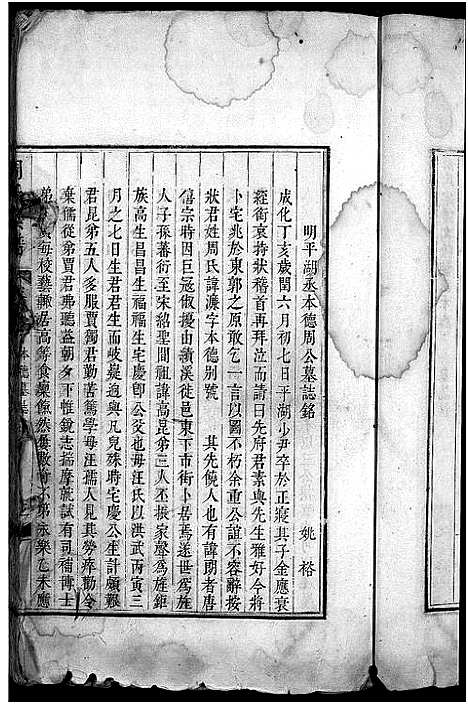 明平湖丞本德周公墓誌銘
姚裕
成化丁亥歲閏六月初七日平湖少尹卒於正寢其子金應衰
絰銜哀持狀稽首再拜泣而請曰先府君素與先生雅好今將
卜宅兆於東郭之原敢乞一言以圖不朽余重公誼不容辭按
狀君姓周氏諱濂字本德別號　　其先饒人也有諱朗者唐
僖宗時因巨寇俶擾由績溪徙邑東下市街卜居焉遂世為旌
人子孫蕃衍至宋紹聖間祖諱高昆弟三人丕振家聲為旌鉅
族高生昌昌生福福生宅慶即公父也母汪氏以洪武丙寅三
月之七日生君君生而岐嶷迥與凡兒殊時宅慶公生計頗艱
君昆弟五人多服賈獨君勤苦篤學母汪孺人見其勞瘁勸令
棄儒從弟賈君弗聽益朝夕下帷銳志揣摩就試有司補博士
弟　　每校藝輒居高等食廩餼然每數奇不第永樂乙未應